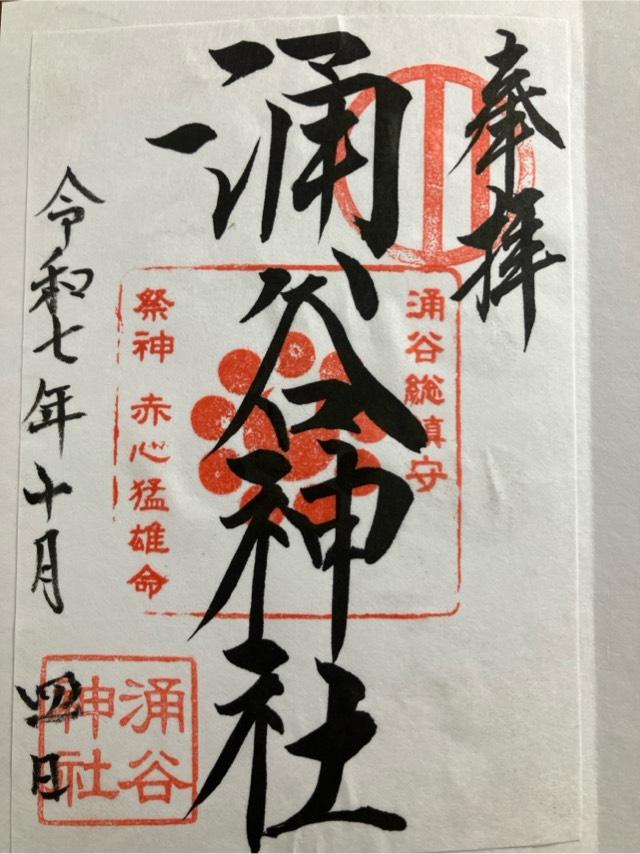 奉拝
涌谷総鎮守
涌谷神社
祭神 赤心猛雄命
令和七年十月四日
涌谷
神社